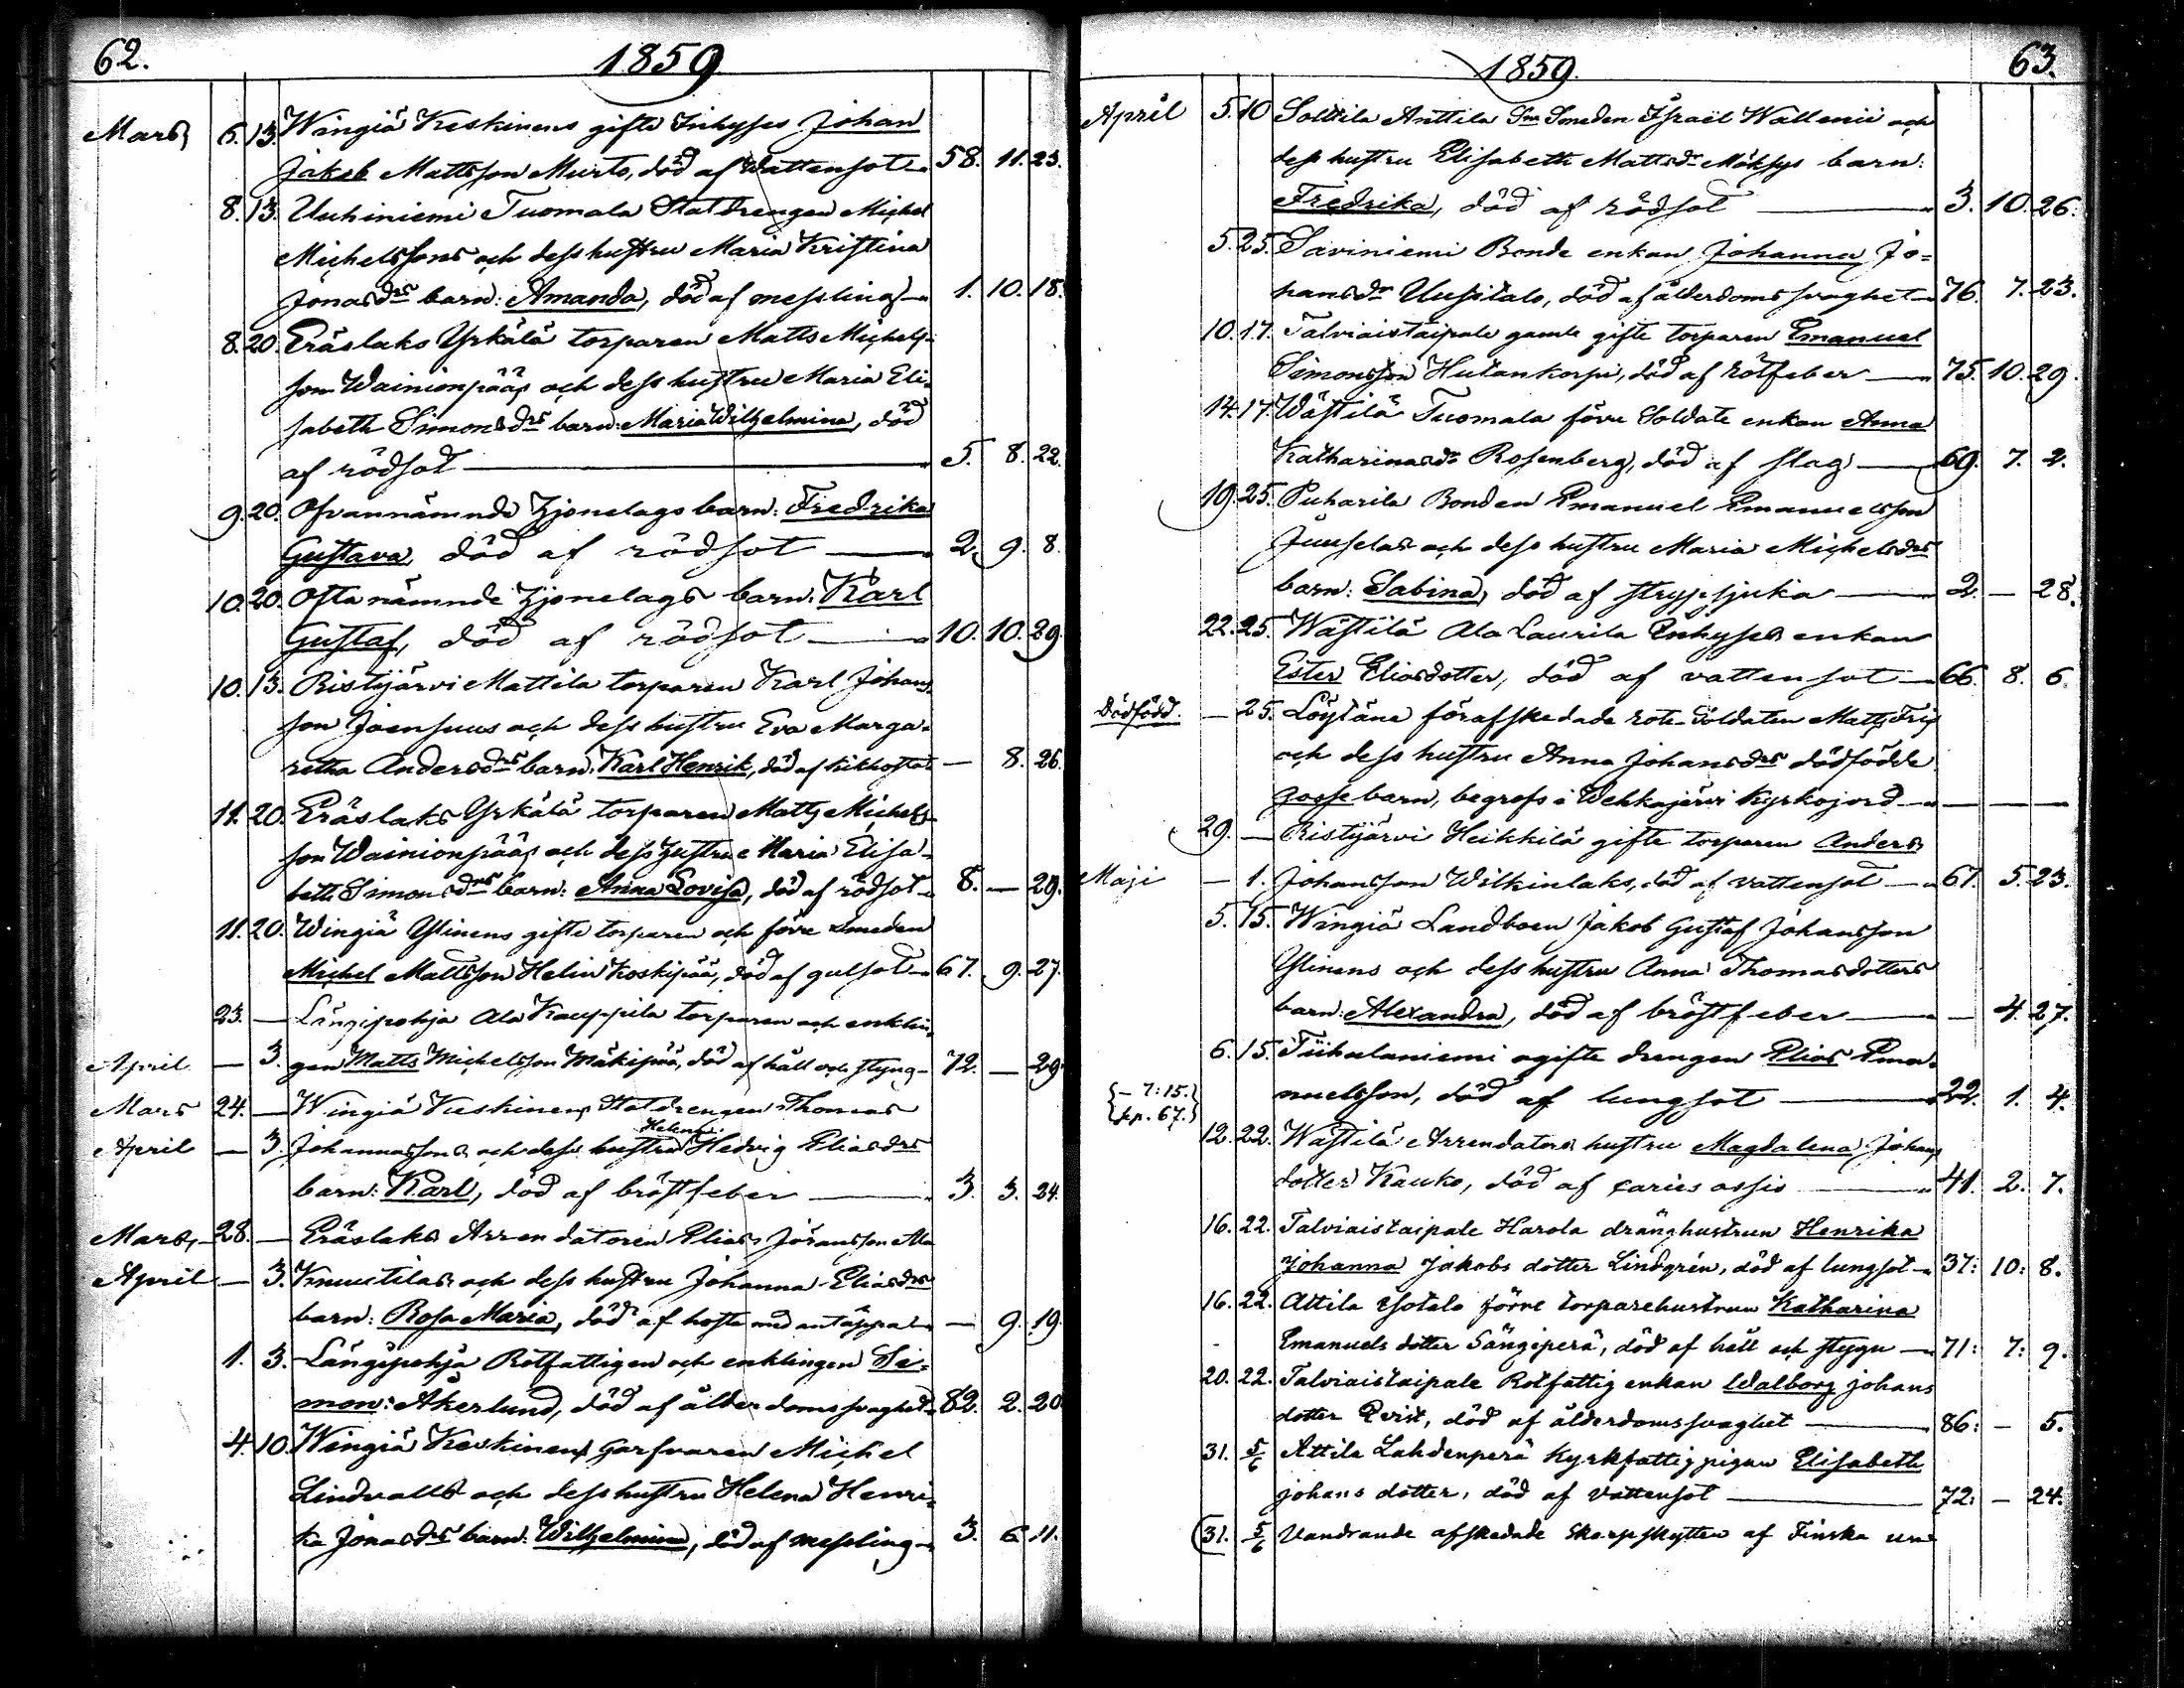 62.
1859
Mars 6. 13. Wingiä Keskinens gifte Inhyses Johan
Jakob Mattsson Murto, död af Wattensot 58. 11. 23.
8. 13. Uuhiniemi Tuomala Statdrengen Michel
Michelssons och dess hustru Maria Kristina
Jonasdrs barn: Amanda, död af messling 1. 10. 18.
8. 20. Eräslaks Yrkälä torparen Matts Michels-
son Wainionpääs och dess hustru Maria Eli-
sabeth Simonsdrs barn: Maria Wilhelmina, död
af rödsot 5. 8. 22.
9. 20. Ofvannämnde hjonelags barn: Fredrika
Gustava, död af rödsot 2. 9. 8.
10. 20. Ofta nämnde hjonelags barn: Karl
Gustaf, död af rödsot 10. 10. 29.
10. 13. Ristijärvi Mattila torparen Karl Johans-
son Joensuus och dess hustru Eva Marga-
retha Andersdrs barn: Karl Henrik, död af kikhosta — 8. 26.
11. 20. Eräslaks Yrkälä torparen Matts Michels-
son Wainionpääs och dess hustru Maria Elisa-
beth Simonsdrs barn: Anna Lovisa, död af rödsot 8. — 29.
11. 20. Wingiä Ylinens gifte torparen och förre Smeden
Michel Mattsson Helin Koskipää, död af gulsot 67. 9. 27.
23. — Längipohja Ala Kauppila torparen och enklin-
April — 3. gen Matts Michelsson Mäkipää, död af håll och styng 72. — 29.
Mars 24. — Wingiä Keskinens Statdrengen Thomas
Helena
April — 3. Johannssons och dess hustru Hedvig Eliasdrs
barn: Karl, död af bröstfeber 3. 3. 24.
Mars 28. — Eräslaks Arrendatoren Elias Jöransson Ala
April — 3. Knuutilas och dess hustru Johanna Eliasdrs
barn: Rosa Maria, död af hosta med antäppa — 9. 19.
1. 3. Längipohja Rotfattigen och enklingen Si-
mon Åkerlund, död af ålderdomssvaghet 82. 2. 20.
4. 10. Wingiä Keskinens garfvaren Michel
Lindvalls och dess hustru Helena Henri-
ka Jonasdrs barn: Wilhelmina, död af messling 3. 6. 11.
1859.
63.
April 5. 10 Soltila Anttila Smeden Israël Wallenii och
dess hustru Elisabeth Mattsdr Möksys barn:
Fredrika, död af rödsot 3. 10. 26.
5. 25. Saviniemi Bonde enkan Johanna Jo-
hansdr Uusitalo, död af ålderdomssvaghet 76. 7. 23.
10. 17. Talviaistaipale gamle gifte torparen Emanuel
Simonsson Hutankorpi, död af rötfeber 75. 10. 29.
14. 17. Wästilä Tuomala förre Soldate enkan Anna
Katharinasdr Rosenberg, död af slag 69. 7. 2.
19. 25. Puharila Bonden Emanuel Emanuelsson
Juuselas och dess hustru Maria Michelsdrs
barn: Sabina, död af strypsjuka 2. — 28.
22. 25. Wästilä Ala Laurila Inhyses enkan
Ester Eliasdotter, död af vattensot 66. 8. 6.
Dödfödd. — 25. Löytäne förafskedade rote Soldaten Matts Fris
och dess hustru Anna Johansdrs dödfödde
gosse barn, begrofs i Wehkajärvi Kyrkojord — — —
29. — Ristijärvi Heikkilä gifte torparen Anders
Maji — 1. Johansson Wilkinlaks, död af vattensot 67. 5. 23.
5. 15. Wingiä Landboen Jakob Gustaf Johansson
Ylinens och dess hustru Anna Thomasdotters
barn: Alexandra, död af bröstfeber — 4. 27.
6. 15. Tiihalaniemi ogifte drengen Elias Ema-
{– 7: 15.}
{pp. 67.}
nuelsson, död af lungsot 22. 1. 4.
12. 22. Wästilä Arrendators hustru Magdalena Johans
dotter Kauko, död af caries ossis 41. 2. 7.
16. 22. Talviaistaipale Harola dränghustrun Henrika
Johanna Jakobs dotter Lindgrén, död af lungsot 37: 10: 8.
16. 22. Attila Isotalo förre torparehustrun Katharina
Emanuels dotter Sängiperä, död af håll och stygn 71: 7: 9.
20. 22. Talviaistaipale Rotfattig enkan Walborg Johans
dotter Qvist, död af ålderdomssvaghet 86: — 5.
31. 5/6 Attila Lahdenperä kyrkfattig pigan Elisabeth
Johans dotter, död af Vattensot 72: — 24.
31. 5/6 Vandrande afskedade Skarpskytten af Finska un-